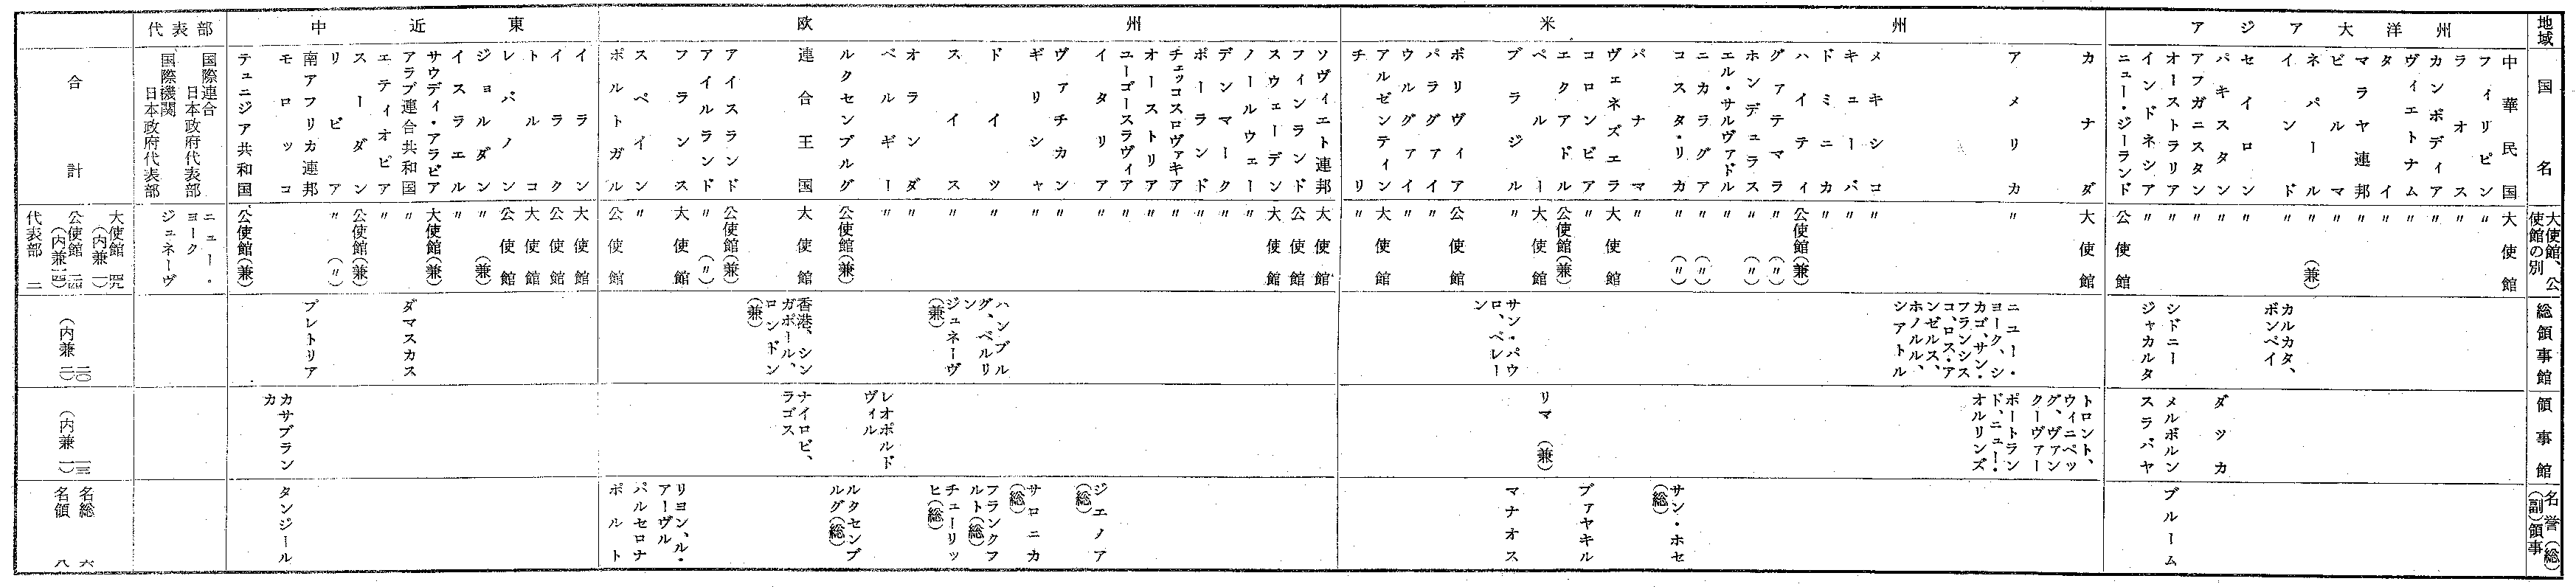 地域
アジア大洋州
米州
欧州
中近東
代表部
国名
中華民国
フィリピン
ラオス
カンボディア
ヴィエトナム
タイ
マラヤ連邦
ビルマ
ネパール
インド
セイロン
パキスタン
アフガニスタン
オーストラリア
インドネシア
ニュー・ジーランド
カナダ
アメリカ
メキシコ
キューバ
ドミニカ
ハイティ
グァテマラ
ホンデュラス
エル・サルヴァドル
ニカラグア
コスタ・リカ
パナマ
ヴェネズエラ
コロンビア
エクアドル
ペルー
ブラジル
ボリヴィア
パラグァイ
ウルグァイ
アルゼンティン
チリ
ソヴィエト連邦
フィンランド
スウェーデン
ノールウェー
デンマーク
ポーランド
チェッコスロヴァキア
オーストリア
ユーゴースラヴィア
イタリア
ヴァチカン
ギリシャ
ドイツ
スイス
オランダ
ベルギー
ルクセンブルグ
連合王国
アイスランド
アイルランド
フランス
スペイン
ポルトガル
イラン
イラク
トルコ
レバノン
ジョルダン
イスラエル
サウディ・アラビア
アラブ連合共和国
エティオピア
スーダン
リビア
南アフリカ連邦
モロッコ
テュニジア共和国
国際連合
日本政府代表部
国際機関
日本政府代表部
合計
大使館、公
使館の別
大使館
〃
〃
〃
〃
〃
〃
〃
〃(兼)
〃
〃
〃
〃
〃
〃
公使館
大使館
〃
〃
〃
〃
公使館(兼)
〃(〃)
〃(〃)
〃
〃(〃)
〃(〃)
〃
大使館
〃
公使館(兼)
大使館
〃
公使館
〃
〃
大使館
〃
大使館
公使館
大使館
〃
〃
〃
〃
〃
〃
〃
〃
〃
〃
〃
〃
〃
公使館(兼)
大使館
公使館(兼)
〃(〃)
大使館
〃
公使館
大使館
公使館
大使館
公使館
〃(兼)
〃
大使館(兼)
〃
〃
公使館(兼)
〃(〃)
公使館(兼)
ニュー・
ヨーク
ジュネーヴ
大使館 四九
(内兼二)
公使館 二四
(内兼一四)
代表部 二
総領事館
カルカタ、
ボンベイ
シドニー
ジャカルタ
ニュー・
ヨーク、シ
カゴ、サン・
フランシス
コ、ロス・ア
ンゼルス、
ホノルル、
シアトル
サン・パウ
ロ、ベレー
ン
ハンブル
グ、ベルリ
ン
ジュネーヴ
(兼)
香港、シン
ガポール、
ロンドン
(兼)
ダマスカス
プレトリア
二〇
(内兼二)
領事館
ダッカ
メルボルン
スラバヤ
トロント、
ウィニペッ
グ、ヴァン
クーヴァー
ポートラン
ド、ニュー・
オルリンズ
リマ(兼)
レオポルド
ヴィル
ナイロビ、
ラゴス
カサブラン
カ
一三
(内兼一)
名誉(総)
(副)領事
ブルーム
サン・ホセ
(総)
ブァヤキル
マナオス
ジェノア
(総)
サロニカ
(総)
フランクフ
ルト(総)
チューリッ
ヒ(総)
ルクセンブ
ルグ(総)
リヨン、ル・
アーヴル
バルセロナ
ポルト
タンジール
名総 六
名領 八